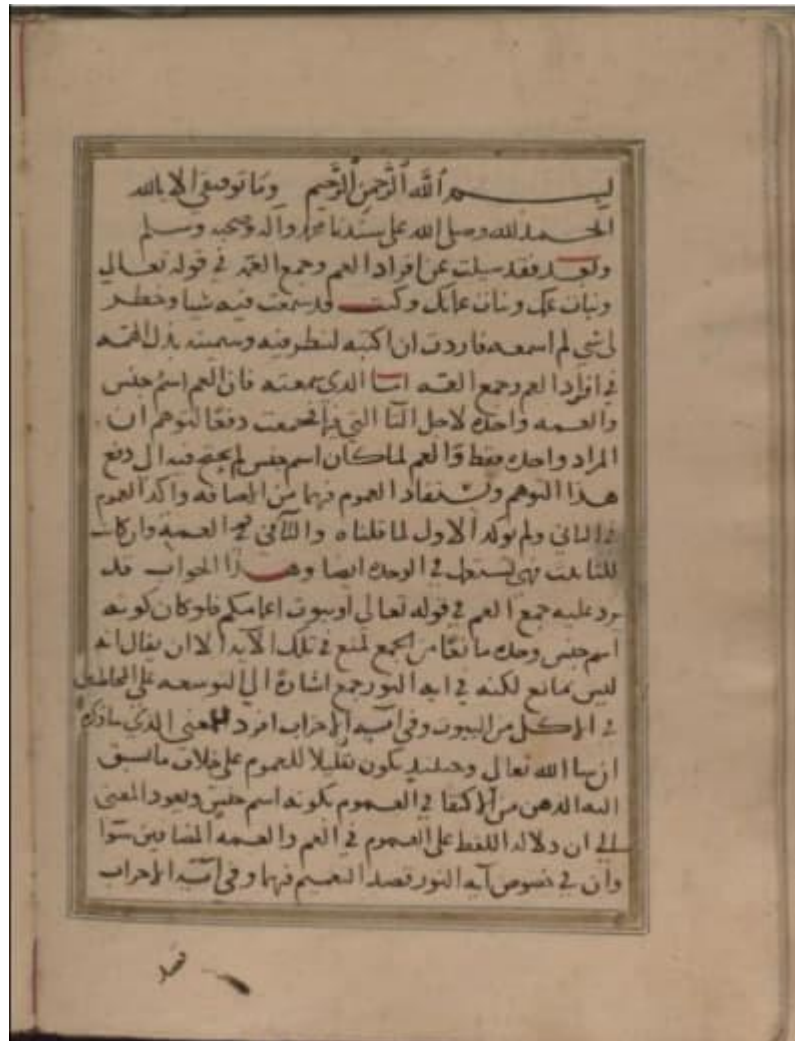 بسم ٱللّٰه ٱلرَّحمن ٱلرَّحيم وما توفيقي الا بالله
الحمد لله وصلى الله على سيدنا محمد وآله وصحبه وسلم
وبعد فقد سيلت عن افراد العم وجمع العمة في قوله تعالى
وبنات عمك وبنات عماتك وكنت قد سمعت فيه شيا وخطر
لى شي لم اسمعه فاردت ان اكتبه لينظر فيه وسميته بذل الهمه
في افراد العم وجمع العمه اما الذي سمعته فان العم اسم جنس
والعمه واحده لاجل التا التي فيها فجمعت دفعا لتوهم ان
المراد واحده فقط والعم لما كان اسم جنس لم يحتج فيه الى دفع
هذا التوهم ويستفاد العموم فيهما من الاضافه واكد العموم
في الثاني ولم يوكد الاول لما قلناه والتا في العمه وان كانت
للتانيث فهي تستعمل في الوحده ايضا وهذا الجواب قد
يرد عليه جمع العم في قوله تعالى او بيوت اعمامكم فلو كان كونه
اسم جنس وحده مانعا من الجمع لمنع في تلك الآيه الا ان يقال انه
ليس بمانع لكنه في ايه النور جمع اشارة الي التوسعه على المخاطبين
في الاكل من البيوت وفي آيه الاحزاب افرد للمعنى الذي ساذكره
ان شا الله تعالى وحينيذ يكون تعليلا للعموم على خلاف ما يسبق
اليه الذهن من الاكتفا في العموم بكونه اسم جنس ويعود المعنى
الى ان دلاله اللفظ على العموم في العم والعمه المضافين سوا
وان في خصوص آيه النور قصد التعميم فيهما وفي آيه الاحزاب
قصد